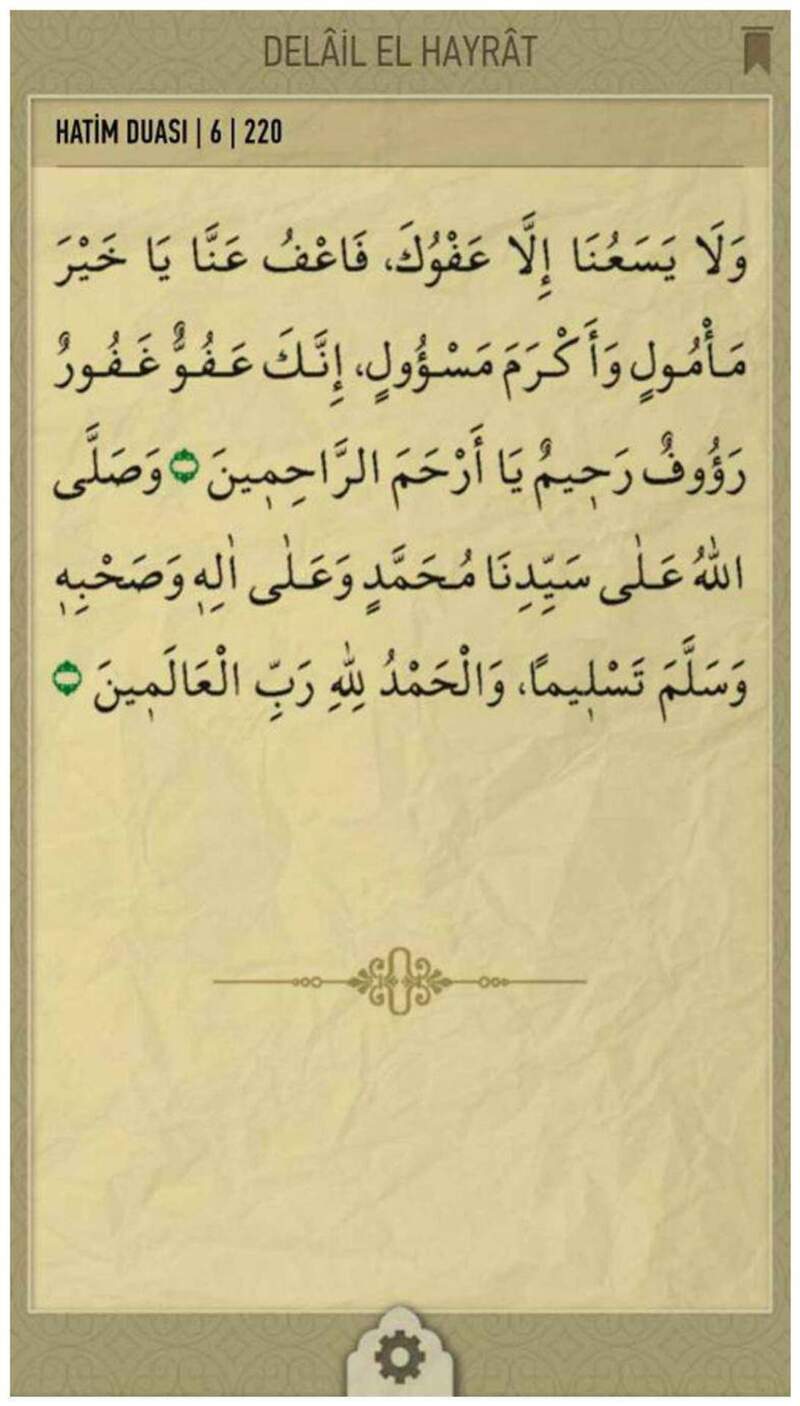 DELÂİL EL HAYRÂT
HATİM DUASI | 6 | 220
وَلَا يَسَعُنَا إِلَّا عَفْوُكَ، فَاعْفُ عَنَّا يَا خَيْرَ
مَأْمُولٍ وَأَكْرَمَ مَسْؤُولٍ، إِنَّكَ عَفُوٌّ غَفُورٌ
رَؤُوفٌ رَحٖيمٌ يَا أَرْحَمَ الرَّاحِمٖينَ وَصَلَّى
اللّٰهُ عَلٰى سَيِّدِنَا مُحَمَّدٍ وَعَلٰى اٰلِهٖ وَصَحْبِهٖ
وَسَلَّمَ تَسْلٖيمًا، وَالْحَمْدُ لِلّٰهِ رَبِّ الْعَالَمٖينَ